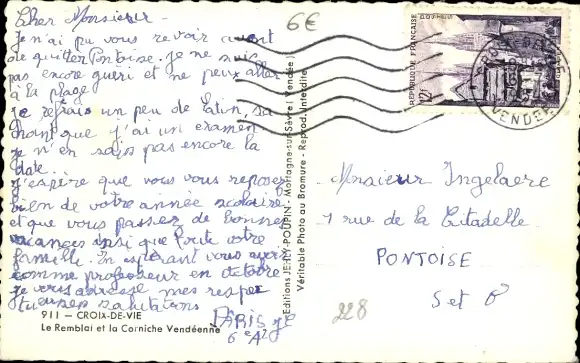 Cher Monsieur -
Je n'ai pu vous revoir avant
de quitter Pontoise. Je ne suis
pas encore gueri et ne peux aller
à la plage
Je refais un peu de latin, sa
chant que j'ai un examen
je n'en sais pas encore la
date.
J'espère que vous vous reposez
bien de votre année scolaire
et que vous passez de bonnes
vacances ainsi que toute votre
famille. En espérant vous avoir
comme professeur en octobre
je vous adresse mes respec
tueuses salutations
PARIS
6e A2
911 — CROIX-DE-VIE
Le Remblai et la Corniche Vendéenne
6€
Editions JEHLY-POUPIN - Mortagne-sur-Sèvre (Vendée)
Véritable Photo au Bromure - Reprod. Interdite
POSTES
REPUBLIQUE FRANÇAISE
12F
CROIX-DE-VIE
VENDEE
Monsieur Ingelaere
7 rue de la Citadelle
PONTOISE
S et O
228